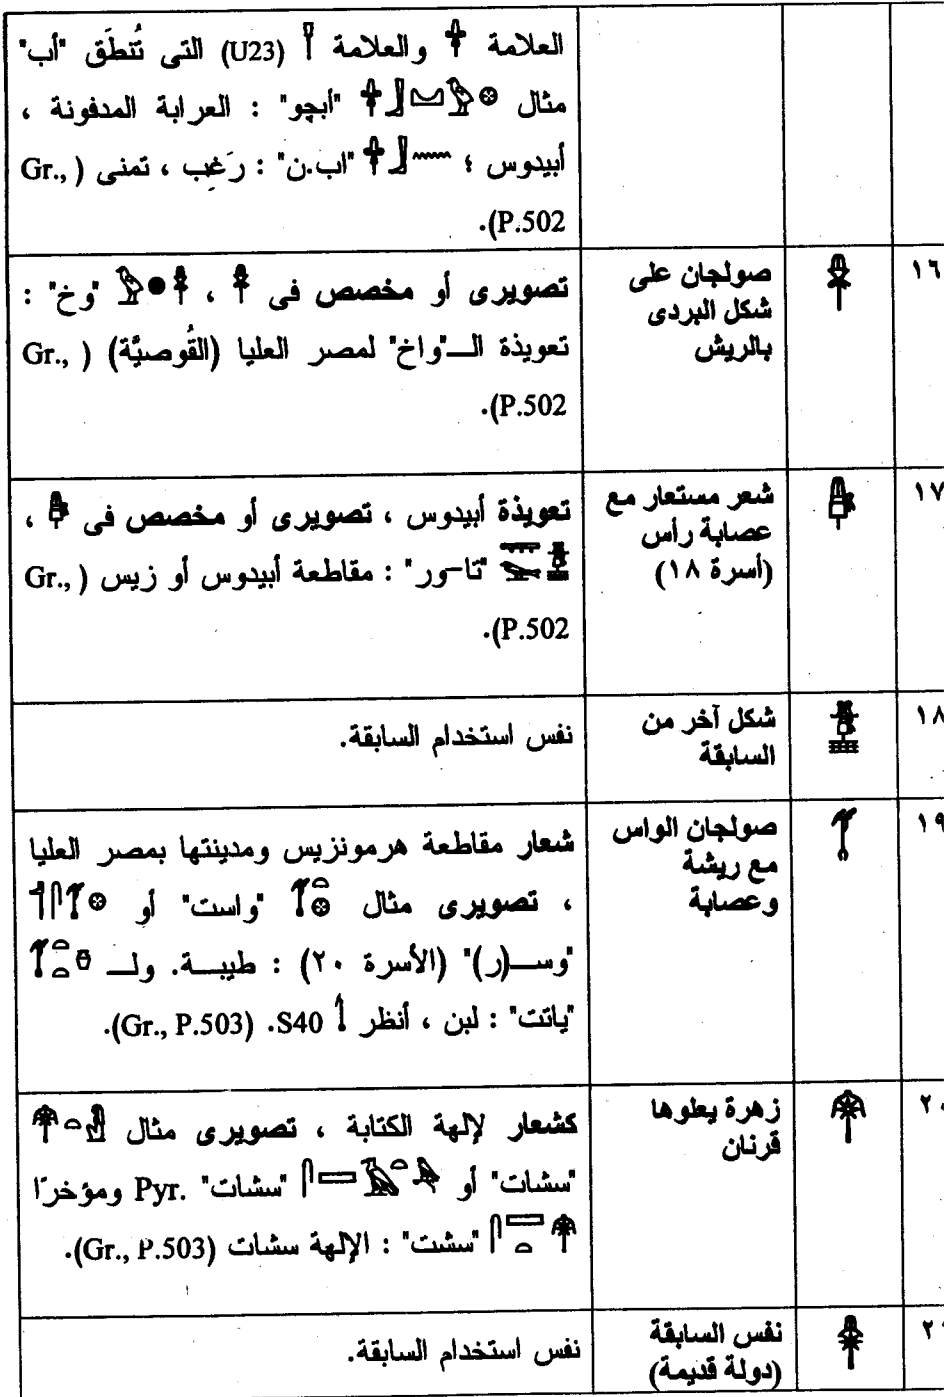 العلامة 𓋁 والعلامة 𓍋 (U23) التى تُنطَق "أب"
مثال 𓊖𓅱𓈋𓃀𓋁 "أبچو" : العرابة المدفونة ،
أبيدوس ؛ 𓈖𓃀𓋁 "اب.ن" : رَغب ، تمنى (Gr.,
P.502).
١٦
صولجان على
شكل البردى
بالريش
تصويرى أو مخصص فى ، "وخ" :
تعويذة الـ"واخ" لمصر العليا (القُوصيَّة) (Gr.,
P.502).
١٧
شعر مستعار مع
عصابة رأس
(أسرة ١٨)
تعويذة أبيدوس ، تصويرى أو مخصص فى ،
"تا-ور" : مقاطعة أبيدوس أو زيس (Gr.,
P.502).
١٨
شكل آخر من
السابقة
نفس استخدام السابقة.
١٩
صولجان الواس
مع ريشة
وعصابة
شعار مقاطعة هرمونزيس ومدينتها بمصر العليا
، تصويرى مثال "واست" أو
"وسـ(ر)" (الأسرة ٢٠) : طيبة. ولـ
"ياتت" : لبن ، أنظر S40. (Gr., P.503).
٢٠
زهرة يعلوها
قرنان
كشعار لإلهة الكتابة ، تصويرى مثال
"سشات" أو "سشات" Pyr. ومؤخرًا
"سشت" : الإلهة سشات (Gr., P.503).
نفس السابقة
(دولة قديمة)
نفس استخدام السابقة.